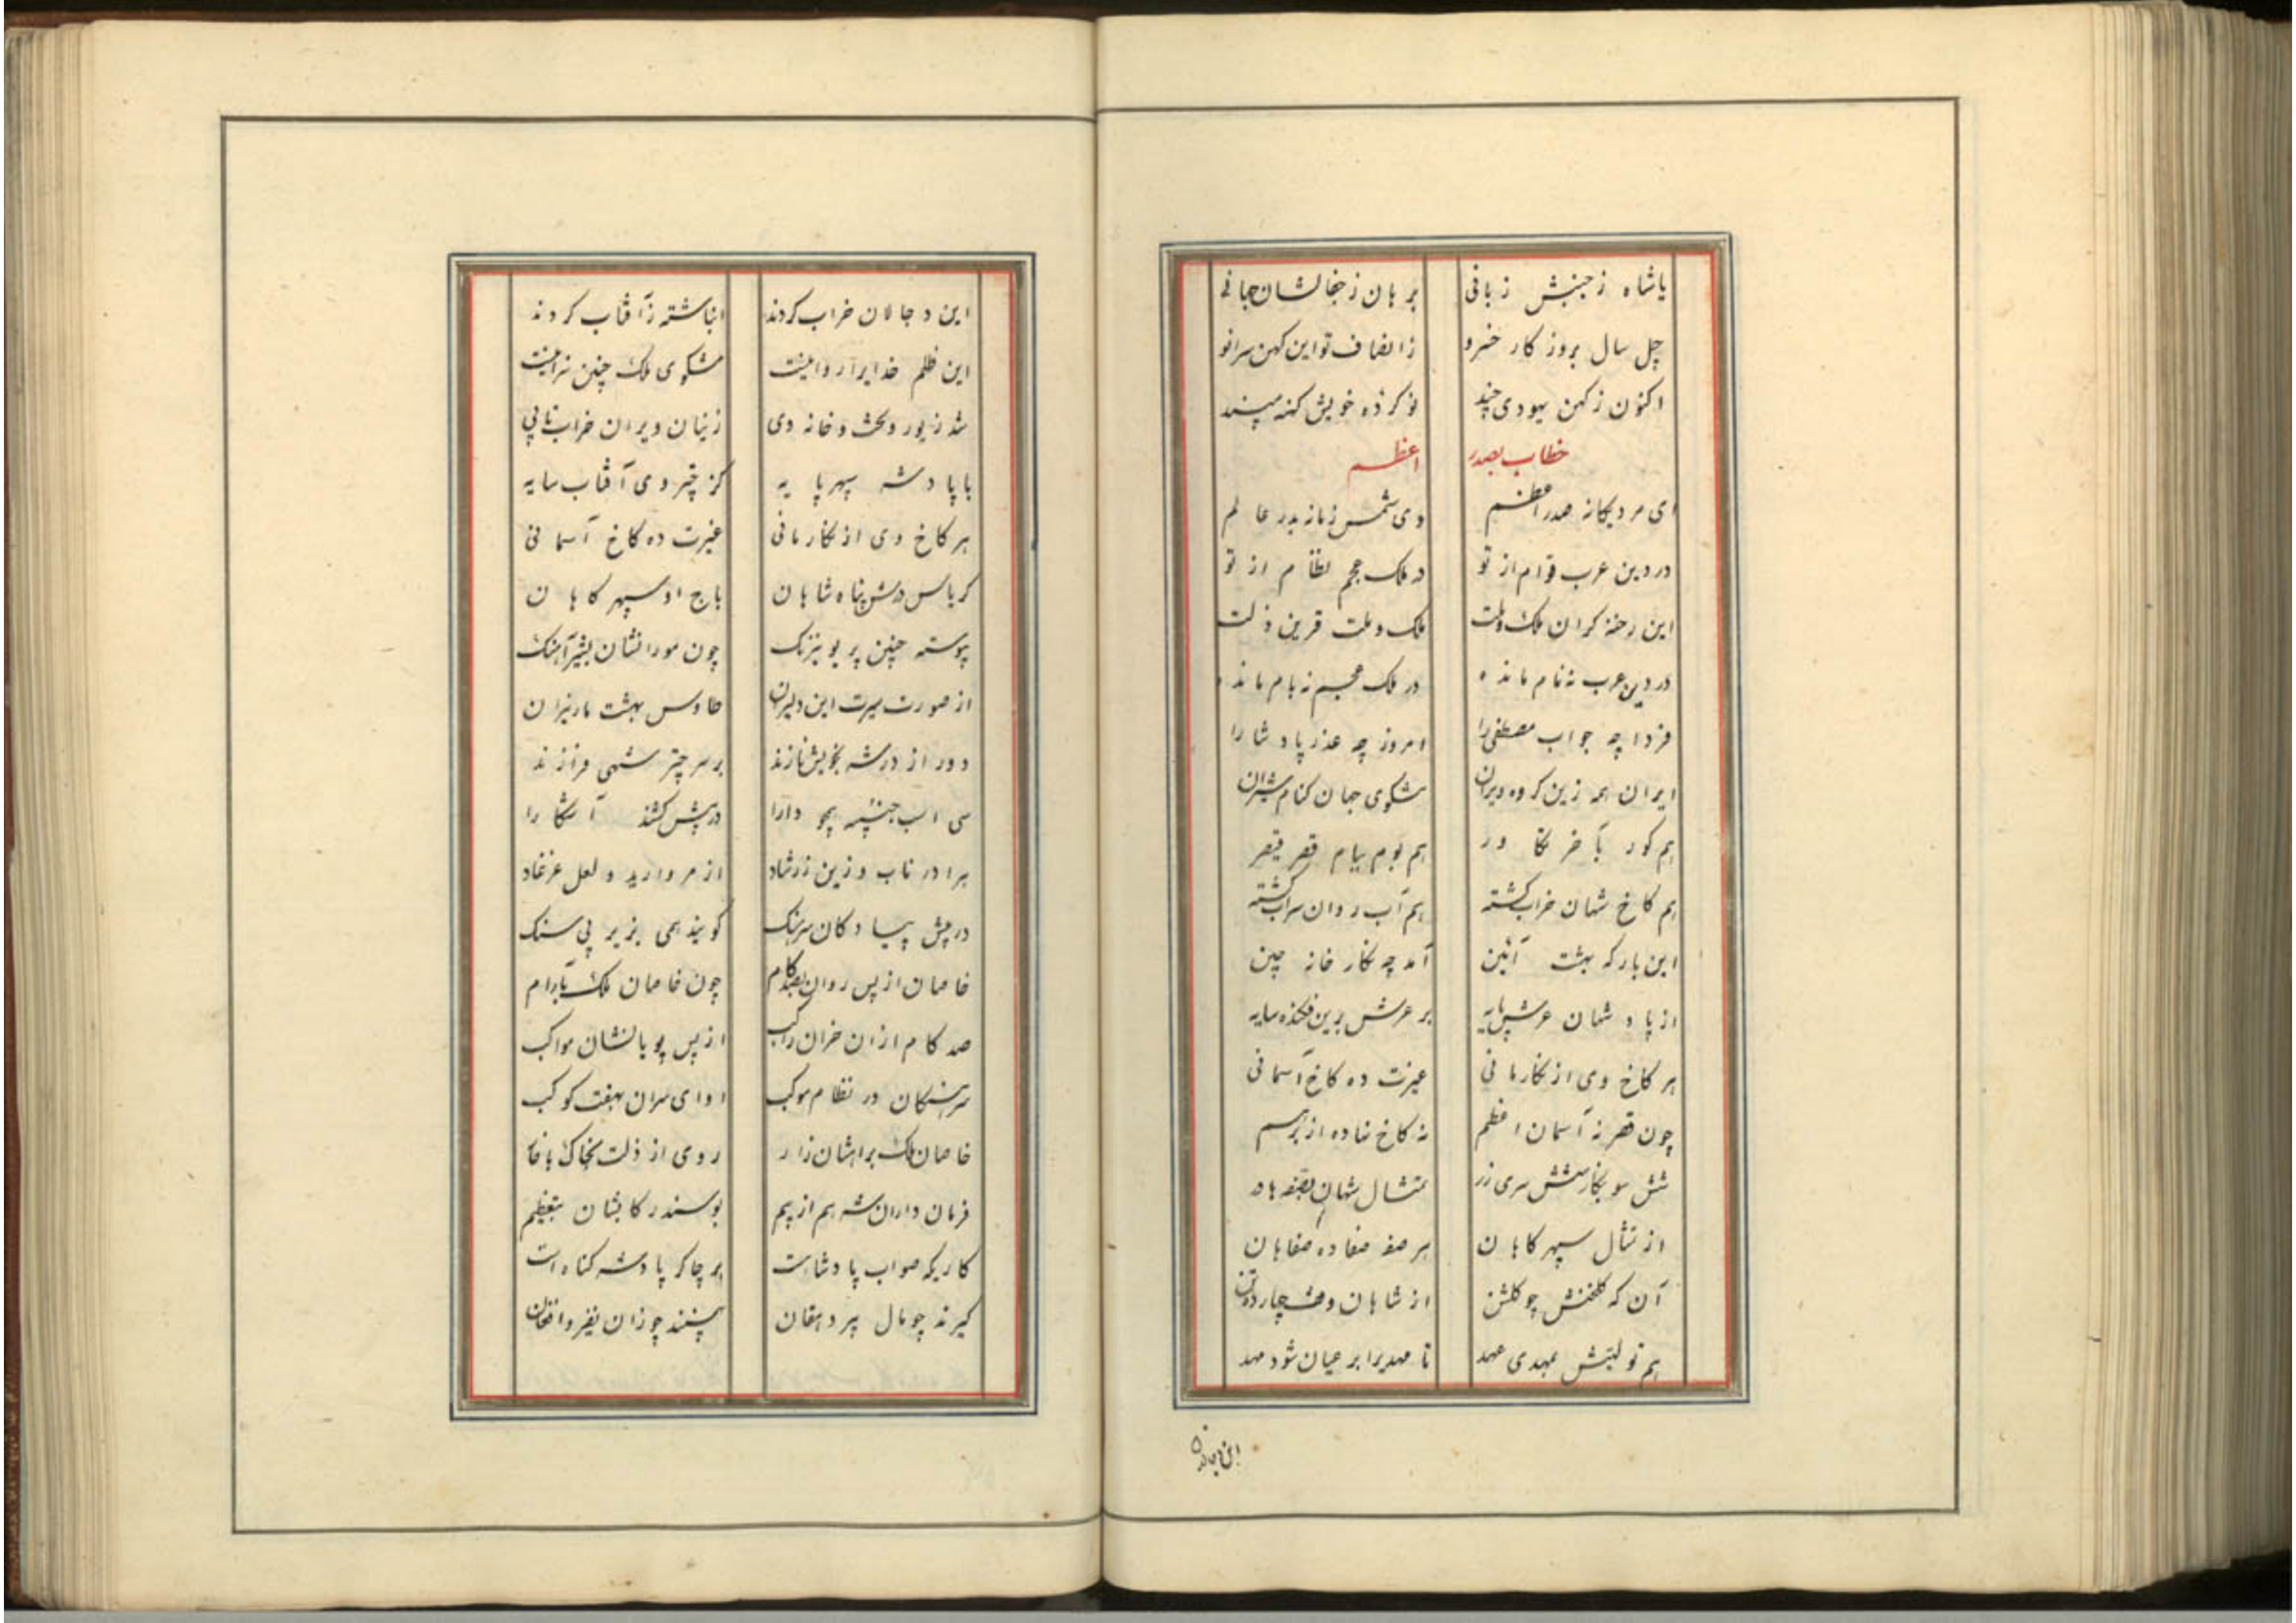 یاشاه ز جنبش زبانی برهان ز خجالشان جهانی
چل سال بروزکار خسرو ز انصاف تو این کهن سرا نو
اکنون ز کهن یهودی چند نو کرده خویش کهنه مپسند
خطاب بصدر اعظم
ای مرد یکانه صدر اعظم وی شمس زمانه بدر عالم
در دین عرب قوام از تو در ملک عجم نظام از تو
این رخنه کران ملک و ملت ملک و ملت قرین ذلت
در دین عرب نه نام مانده در ملک عجم نه بام مانده
فردا چه جواب مصطفی را امروز چه عذر پادشا را
ایران همه زین کروه ویران مشکوی جهان کنام شیران
هم کور با خر تکاور هم بوم ببام قصر قیصر
هم کاخ شهان خراب کشته هم آب روان سراب کشته
این بارکه بهشت آئین آمد چه نکار خانه چین
از پادشهان عرش پایه بر عرش برین فکنده سایه
هر کاخ وی از نکار مانی غیرت ده کاخ آسمانی
چون قصر نه آسمان اعظم نه کاخ نهاده از بر هم
شش سو بکارشش سری زر تمثال شهان بصفه ها در
از تمثال سپهر کاهان هر صفه صفا ده صفاهان
آن که کلخنش چو کلشن از شاهان وقف چارده تن
هم تولیتش بمهدی عهد تا مهدیرا بر عیان شود مهد
این دجالان خراب کردند انباشته ز آفتاب کردند
این ظلم خدایرا روا نیست مشکوی ملک چنین سرا نیست
شد زیور و تخت و خانه وی زینان ویران خراب تا پی
با پادشه سپهر پایه کز چتر وی آفتاب سایه
هر کاخ وی از نکار مانی غیرت ده کاخ آسمانی
کریاس درش پناه شاهان باج او سپهر کاهان
پیوسته چنین پر بو نیرنک چون مورانشان بشیر آهنک
از صورت سیرت این دلیران طاوس بهشت مار نیران
دور از در شه بخویش نازند بر سر چتر شهی فرازند
سی اسب جنیبه همچو دارا در پیش کشند آشکارا
هرا در ناب و زین زرشاد از مروارید و لعل غرغاد
در پیش پیادکان سرهنک کویند همی بزیر پی سنک
خاصان از پس روان بصد کام چون خاصان ملک بآرام
صد کام از ان خران راکب از پس پویانشان مواکب
سرهنکان در نظام موکب او ای سران بهفت کوکب
خاصان ملک براهشان زار روی از ذلت بخاک با خار
فرمان داران شه هم از بیم بوسند رکابشان بتعظیم
کاریکه صواب پادشاست بر چاکر پادشه کناه است
کیرند چو مال پیر دهقان بینند چو زان نفیر و افغان
این دجالان